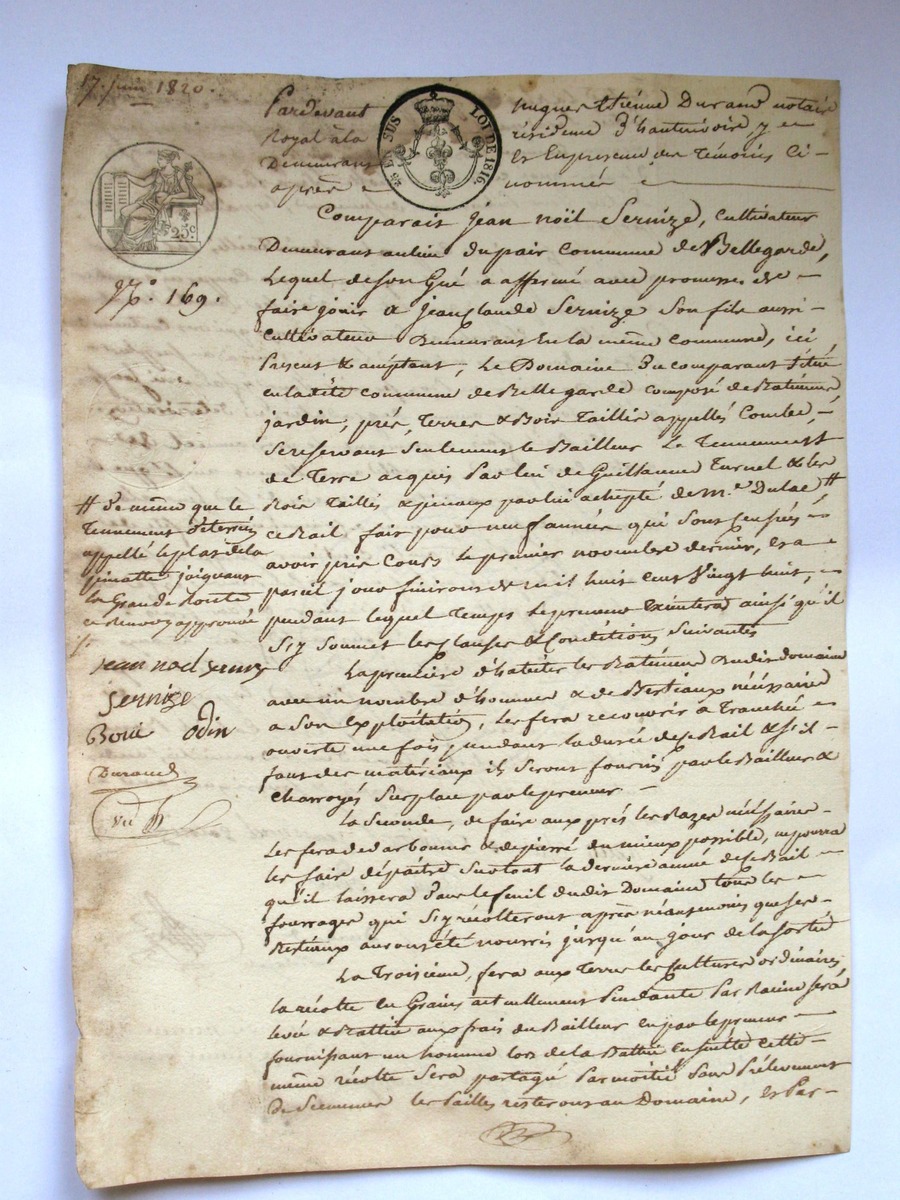 17. juin 1820.
Pardevant hugues Etienne Durand notaire
Royal à la résidence d'hauterivoire, y
Demeurant et En presence des Témoins Ci-
après nommés
25. EN SUS LOI DE 1816.
25c.
N.º 169.
Comparait jean noël Sernize, Cultivateur
Demeurant au lieu du pair Commune de Bellegarde,
Lequel de son Gré a affermé avec promesse de
faire jouir a jean Claude Sernize Son fils aussi
Cultivateur Demeurant En la même Commune, ici
Present & acceptant, Le Domaine du comparant situé
en la dite commune de Bellegarde composé de Batiments
jardin, prés, Terres & Bois Taillis appellés Combe,
Se reservant Seulement le Bailleur Le Tennement
de Terre acquis Par lui de Guillaume Turnel & les
Bois Taillis & pinaux par lui achepté de M.e Dulac #
ce Bail fait pour neuf années qui Sont Censées
avoir pris Cours Le premier novembre dernier, Et a
pareil jour finiront de mil huit cent Vingt huit,
pendant lequel Temps Le preneur Exécutera ainsi qu'il
S'y Soumet les Clauses & Conditions Suivantes
La premiere d'habiter les Batiments dudit domaine
avec un nombre d'hommes & de Bestiaux nécéssaires
a Son Exploitation, Les fera recouvrir à Tranchée
ouverte une fois, pendant la durée de ce Bail & s'il
faut des matériaux ils Seront fournis par le Bailleur &
Charroyés Sur place par le preneur
La Seconde, de faire aux prés les Razes nécéssaires
Les fera dedarbonner & depierré du mieux possible, ne pourra
les faire dépaître Surtout la dernière année de ce Bail
qu'il laissera dans le fenil dudit Domaine tous les
fourrages qui S'y récolteront après néanmoins que ses
Bestiaux auront été nourris jusqu'au jour de la Sortie
La Troisieme, fera aux Terres les Cultures ordinaires
la récolte En Grains actuellement Pendante Par Racine Sera
levée & Battue aux frais du Bailleur En par le preneur
fournissant un homme lors de la Battue Ensuitte cette
même récolte Sera partagé Par moitié Sans Prélevement
de Semences les Pailles resteront au Domaine, Et Par-
# de même que le
Tennement déterrin
appellé le plat de la
pinatte joignant
la Grande Route
ce Renvoy approuvé
jean noel serniz
sernize
Boué odin
Durand
vu